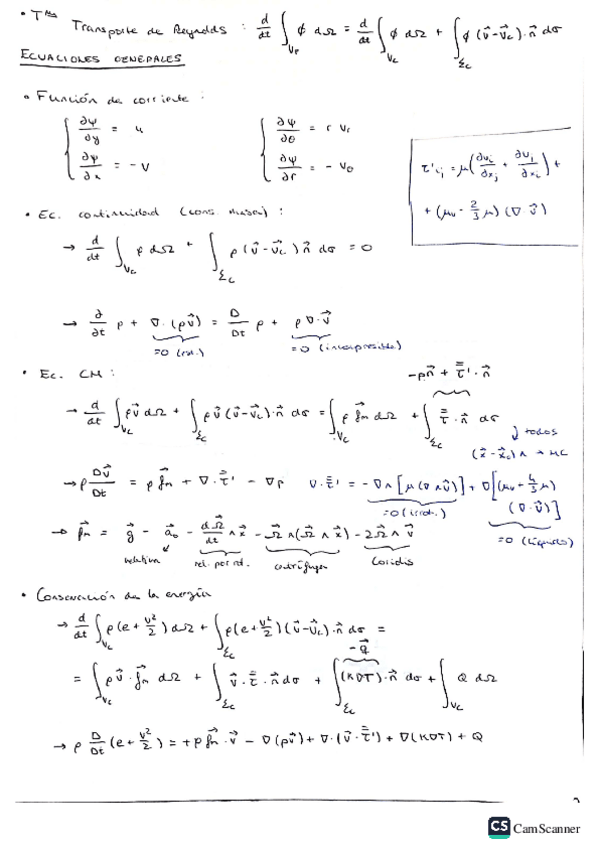 • Tma Transporte de Reynolds : d/dt ∫_Vf φ dΩ = d/dt ∫_Vc φ dΩ + ∫_Σc φ (v⃗ - v⃗c)·n⃗ dσ
ECUACIONES GENERALES
• Función de corriente :
∂ψ/∂y = u
∂ψ/∂x = -v
∂ψ/∂θ = r vr
∂ψ/∂r = - vθ
τ'ij = μ(∂vi/∂xj + ∂vj/∂xi) +
+ (μv - 2/3 μ) (∇·v⃗)
• Ec. continuidad (cons. masa) :
→ d/dt ∫_Vc ρ dΩ + ∫_Σc ρ (v⃗ - v⃗c) n⃗ dσ = 0
→ ∂/∂t ρ + ∇·(ρv⃗) = D/Dt ρ + ρ∇·v⃗
=0 (est.) =0 (incompresible)
• Ec. CM :
-pn⃗ + τ̿'·n⃗
→ d/dt ∫_Vc ρv⃗ dΩ + ∫_Σc ρv⃗ (v⃗ - v⃗c)·n⃗ dσ = ∫_Vc ρ f⃗m dΩ + ∫_Σc τ̿·n⃗ dσ
↓ todos
(x⃗ - x⃗0) ∧ → MC
→ ρ Dv⃗/Dt = ρ f⃗m + ∇·τ̿' - ∇p ∇·τ̿' = -∇∧[μ(∇∧v⃗)] + ∇[(μv + 4/3 μ)
(∇·v⃗)]
=0 (irrot.)
=0 (líquido)
→ f⃗m = g⃗ - a⃗0 - dΩ⃗/dt ∧ x⃗ - Ω⃗ ∧ (Ω⃗ ∧ x⃗) - 2Ω⃗ ∧ v⃗
relativa centrífuga Coriolis
• Conservación de la energía
→ d/dt ∫_Vc ρ(e + v²/2) dΩ + ∫_Σc ρ(e + v²/2)(v⃗ - v⃗c)·n⃗ dσ =
-q⃗
= ∫_Vc ρv⃗·f⃗m dΩ + ∫_Σc v⃗·τ̿·n⃗ dσ + ∫_Σc (K∇T)·n⃗ dσ + ∫_Vc Q dΩ
→ ρ D/Dt (e + v²/2) = +ρ f⃗m·v⃗ - ∇(pv⃗) + ∇·(v⃗·τ̿') + ∇(K∇T) + Q
CS CamScanner